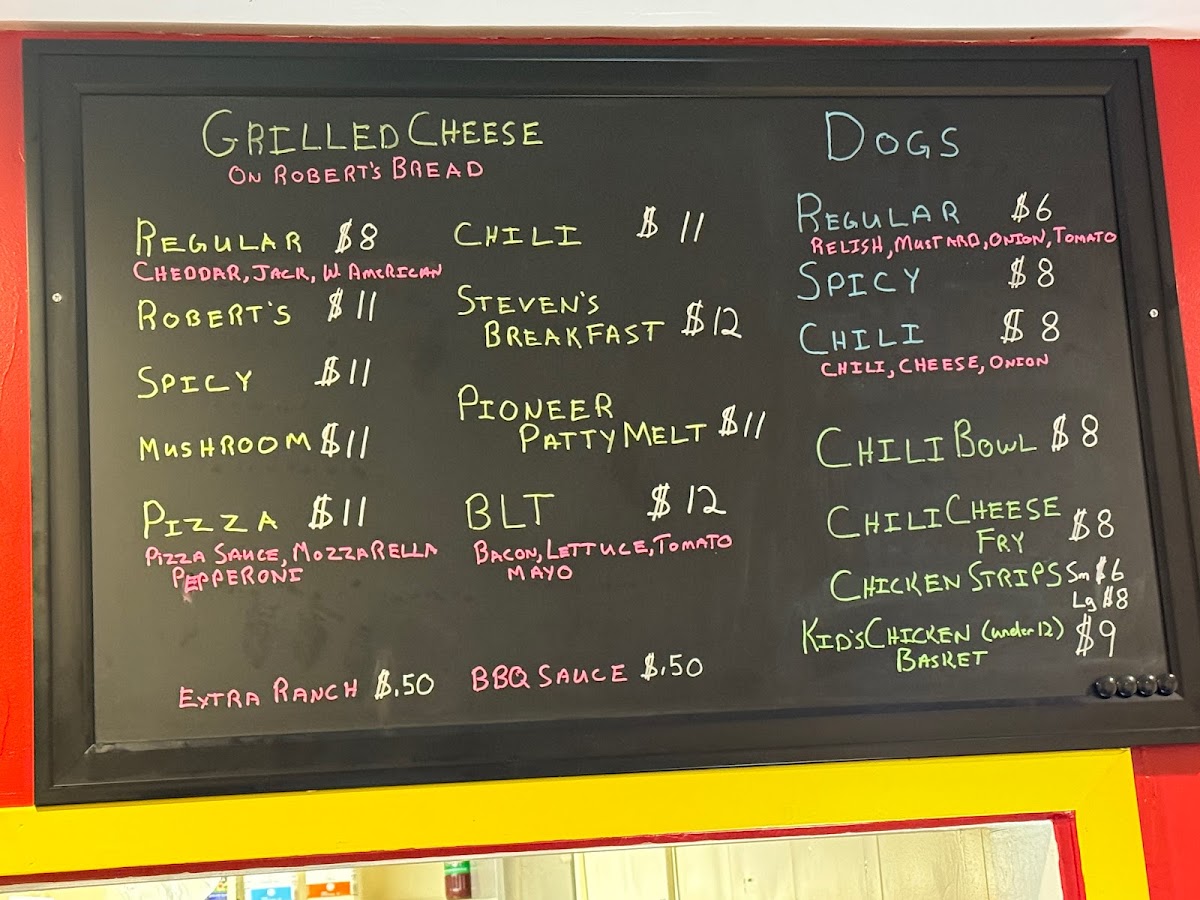 GRILLED CHEESE
ON ROBERT'S BREAD
REGULAR $8
CHEDDAR, JACK, W. AMERICAN
ROBERT'S $11
SPICY $11
MUSHROOM $11
PIZZA $11
PIZZA SAUCE, MOZZARELLA
PEPPERONI
CHILI $11
STEVEN'S
BREAKFAST $12
PIONEER
PATTY MELT $11
BLT $12
BACON, LETTUCE, TOMATO
MAYO
EXTRA RANCH $.50
BBQ SAUCE $.50
DOGS
REGULAR $6
RELISH, MUSTARD, ONION, TOMATO
SPICY $8
CHILI $8
CHILI, CHEESE, ONION
CHILI BOWL $8
CHILI CHEESE
FRY $8
CHICKEN STRIPS Sm $6
Lg $8
KID'S CHICKEN (under 12) $9
BASKET